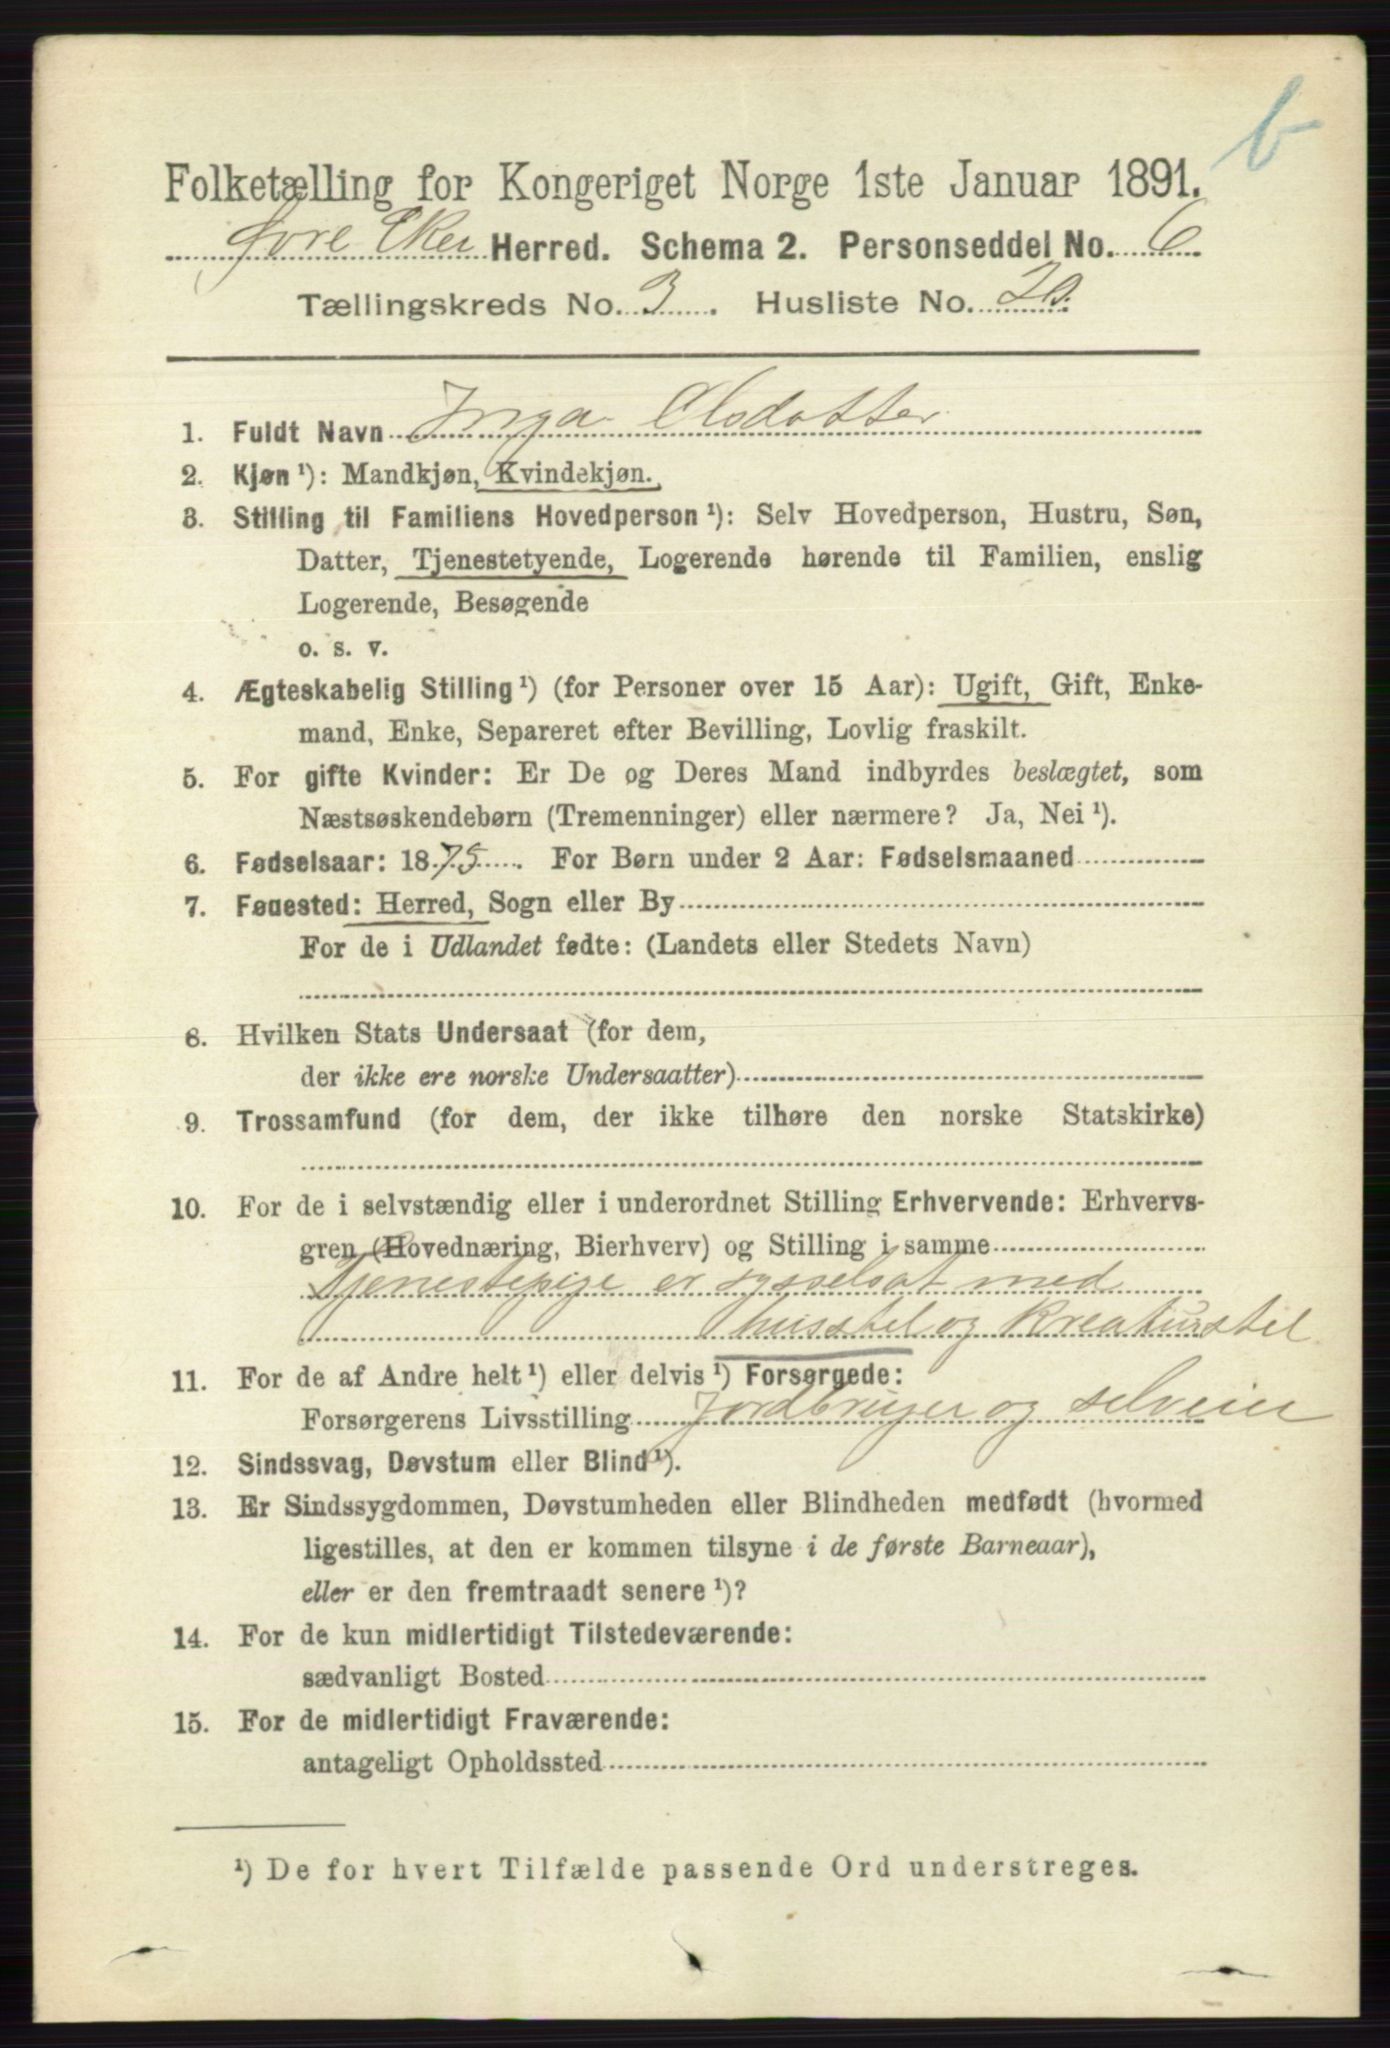 b
Folketælling for Kongeriget Norge 1ste Januar 1891.
Øvre Eker Herred. Schema 2. Personseddel No. 6
Tællingskreds No. 3. Husliste No. 20.
1. Fuldt Navn Inga Olsdatter
2. Kjøn ¹): Mandkjøn, Kvindekjøn.
3. Stilling til Familiens Hovedperson ¹): Selv Hovedperson, Hustru, Søn,
Datter, Tjenestetyende, Logerende hørende til Familien, enslig
Logerende, Besøgende
o. s. v.
4. Ægteskabelig Stilling ¹) (for Personer over 15 Aar): Ugift, Gift, Enke-
mand, Enke, Separeret efter Bevilling, Lovlig fraskilt.
5. For gifte Kvinder: Er De og Deres Mand indbyrdes beslægtet, som
Næstsøskendebørn (Tremenninger) eller nærmere? Ja, Nei ¹).
6. Fødselsaar: 1875. For Børn under 2 Aar: Fødselsmaaned
7. Føuested: Herred, Sogn eller By
For de i Udlandet fødte: (Landets eller Stedets Navn)
8. Hvilken Stats Undersaat (for dem,
der ikke ere norske Undersaatter)
9. Trossamfund (for dem, der ikke tilhøre den norske Statskirke)
10. For de i selvstændig eller i underordnet Stilling Erhvervende: Erhvervs-
gren (Hovednæring, Bierhverv) og Stilling i samme
Tjenestepige er sysselsat med
husstel og Kreaturstel
11. For de af Andre helt ¹) eller delvis ¹) Forsørgede:
Forsørgerens Livsstilling Jordbruger og selveier
12. Sindssvag, Døvstum eller Blind ¹).
13. Er Sindssygdommen, Døvstumheden eller Blindheden medfødt (hvormed
ligestilles, at den er kommen tilsyne i de første Barneaar),
eller er den fremtraadt senere ¹)?
14. For de kun midlertidigt Tilstedeværende:
sædvanligt Bosted
15. For de midlertidigt Fraværende:
antageligt Opholdssted
¹) De for hvert Tilfælde passende Ord understreges.